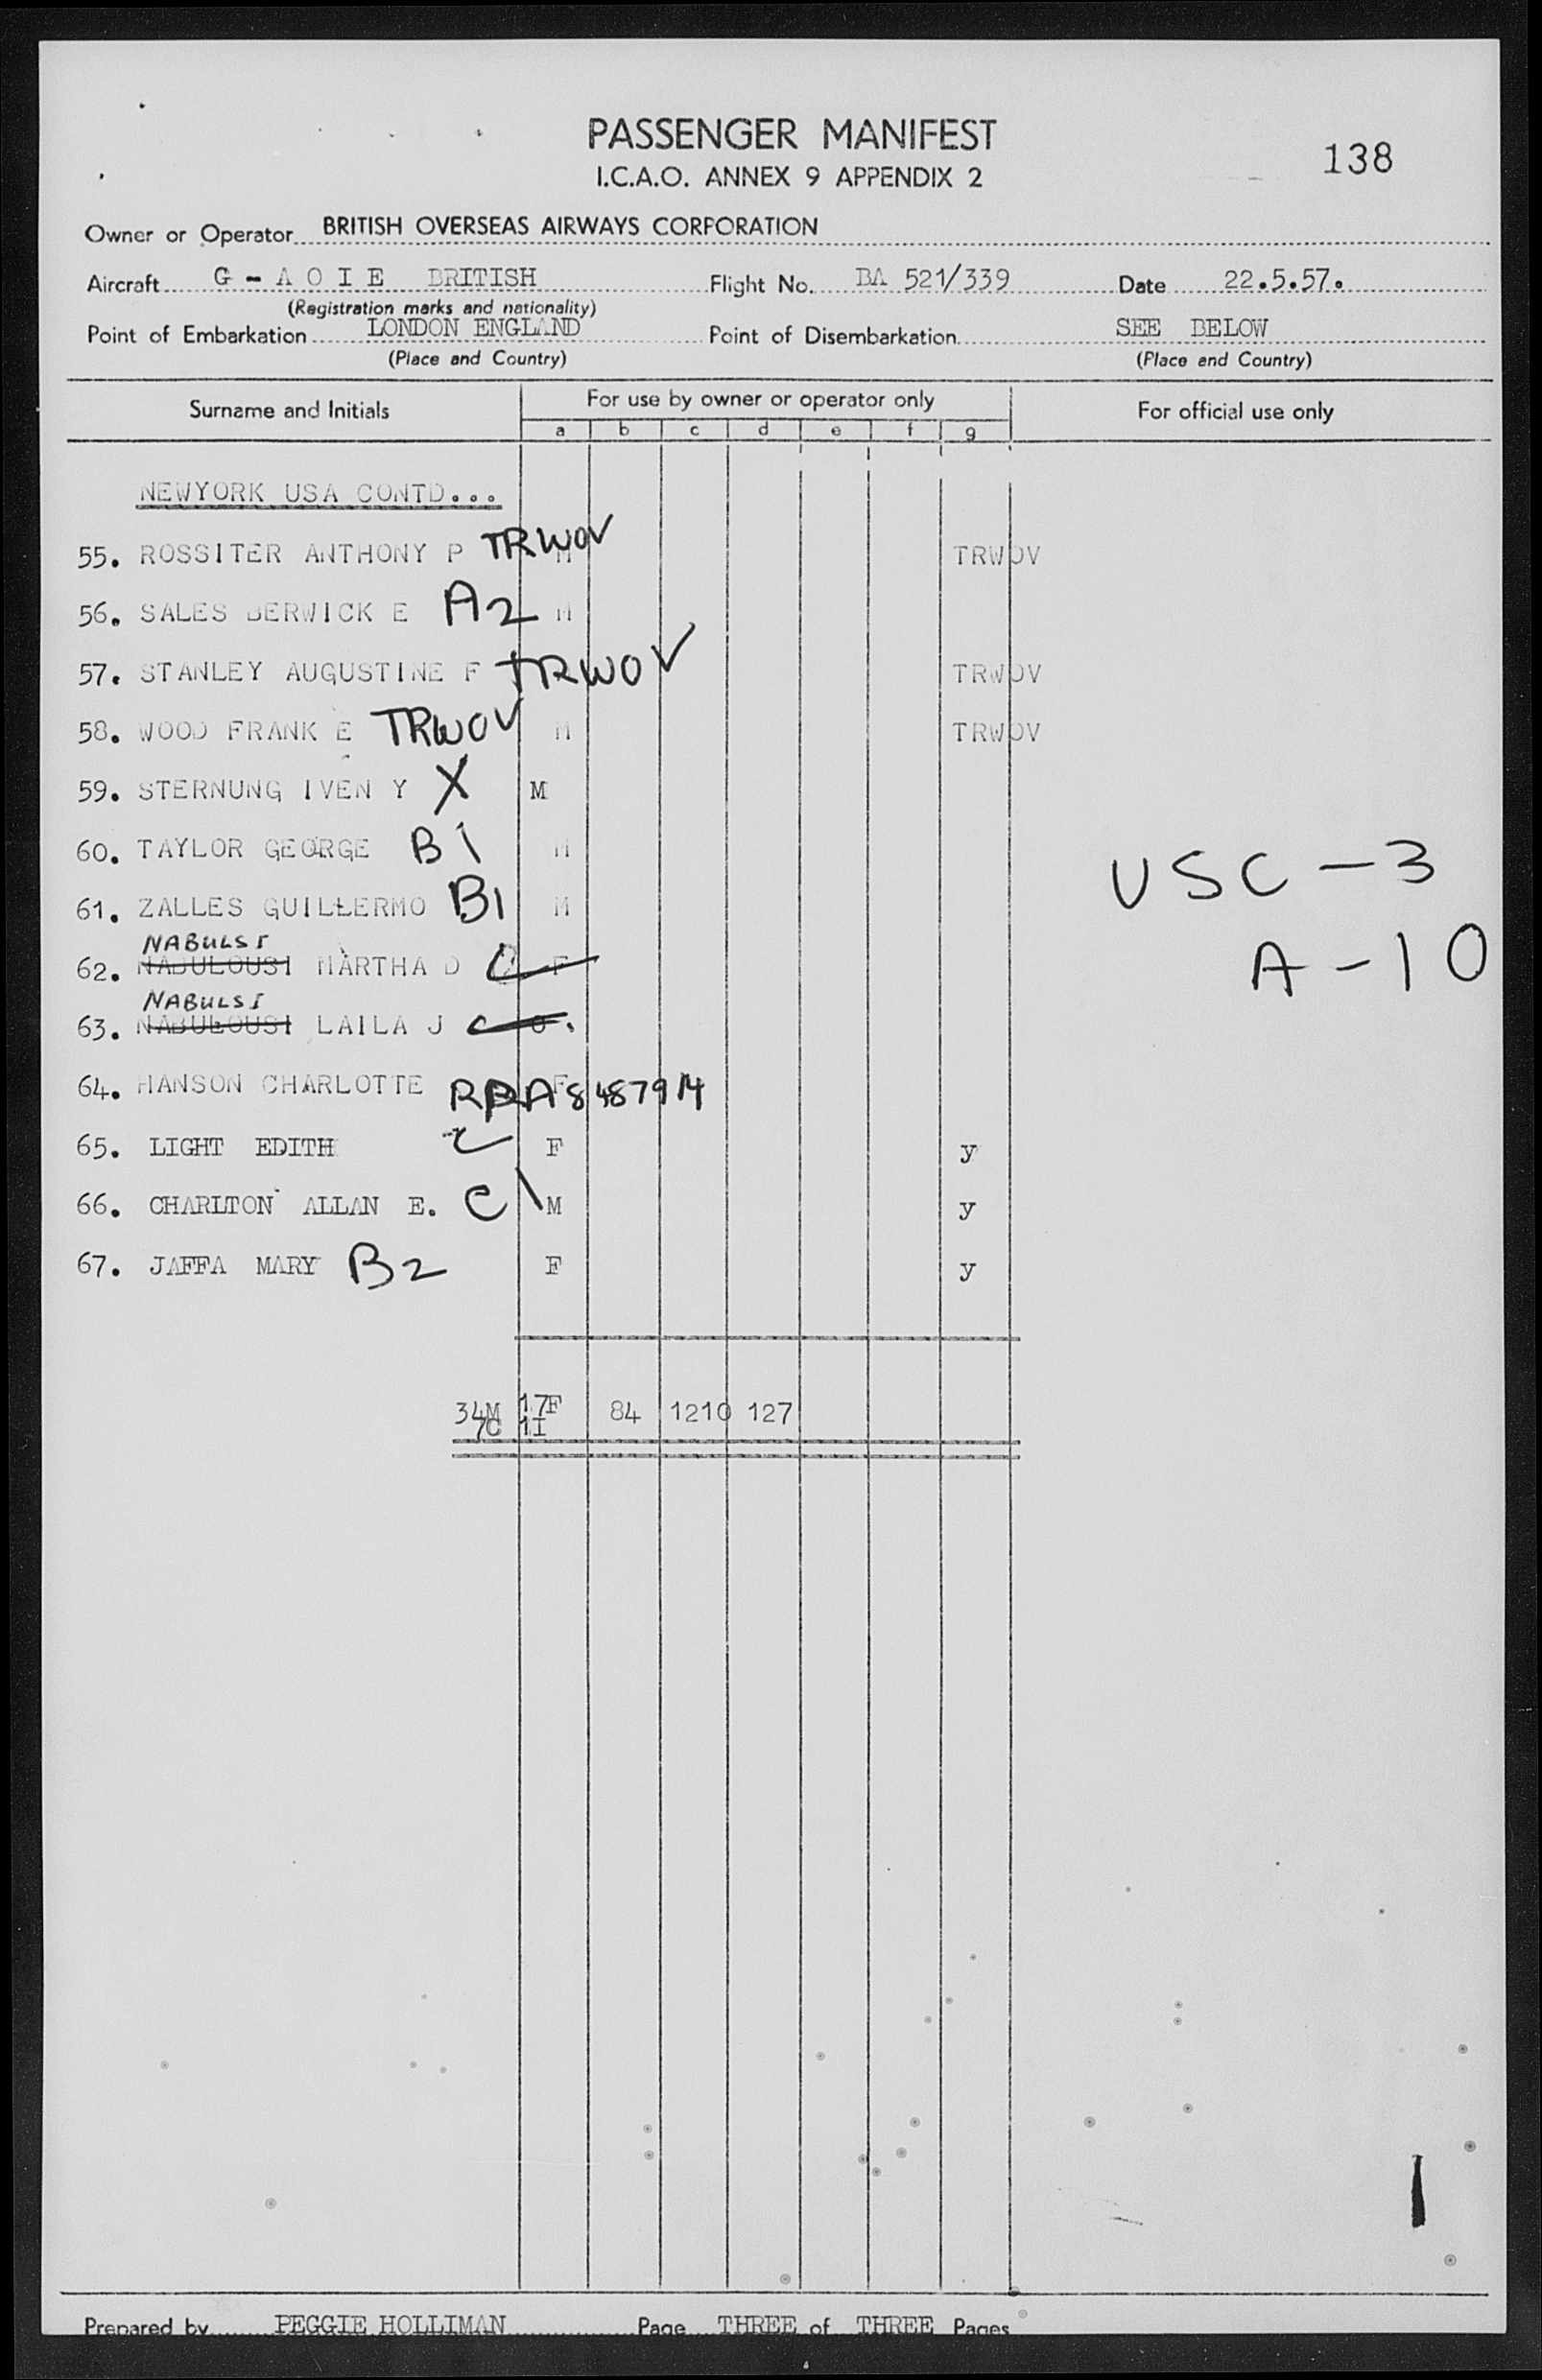 PASSENGER MANIFEST
I.C.A.O. ANNEX 9 APPENDIX 2
138
Owner or Operator BRITISH OVERSEAS AIRWAYS CORPORATION
Aircraft G - A O I E BRITISH Flight No. BA 521/339 Date 22.5.57.
(Registration marks and nationality)
Point of Embarkation LONDON ENGLAND Point of Disembarkation SEE BELOW
(Place and Country) (Place and Country)
Surname and Initials For use by owner or operator only For official use only
a b c d e f g
NEWYORK USA CONTD...
55. ROSSITER ANTHONY P TRWOV M TRWOV
56. SALES BERWICK E A2 M
57. STANLEY AUGUSTINE F TRWOV TRWOV
58. WOOD FRANK E TRWOV M TRWOV
59. STERNUNG IVEN Y X M
60. TAYLOR GEORGE B1 M
USC - 3
61. ZALLES GUILLERMO B1 M
NABULSI
62. NABULOUSI MARTHA D F
A - 10
NABULSI
63. NABULOUSI LAILA J C
64. HANSON CHARLOTTE F A8487914
65. LIGHT EDITH F y
66. CHARLTON ALLAN E. C1 M y
67. JAFFA MARY B2 F y
34M 17F 84 1210 127
7C 1I
Prepared by PEGGIE HOLLIMAN Page THREE of THREE Pages